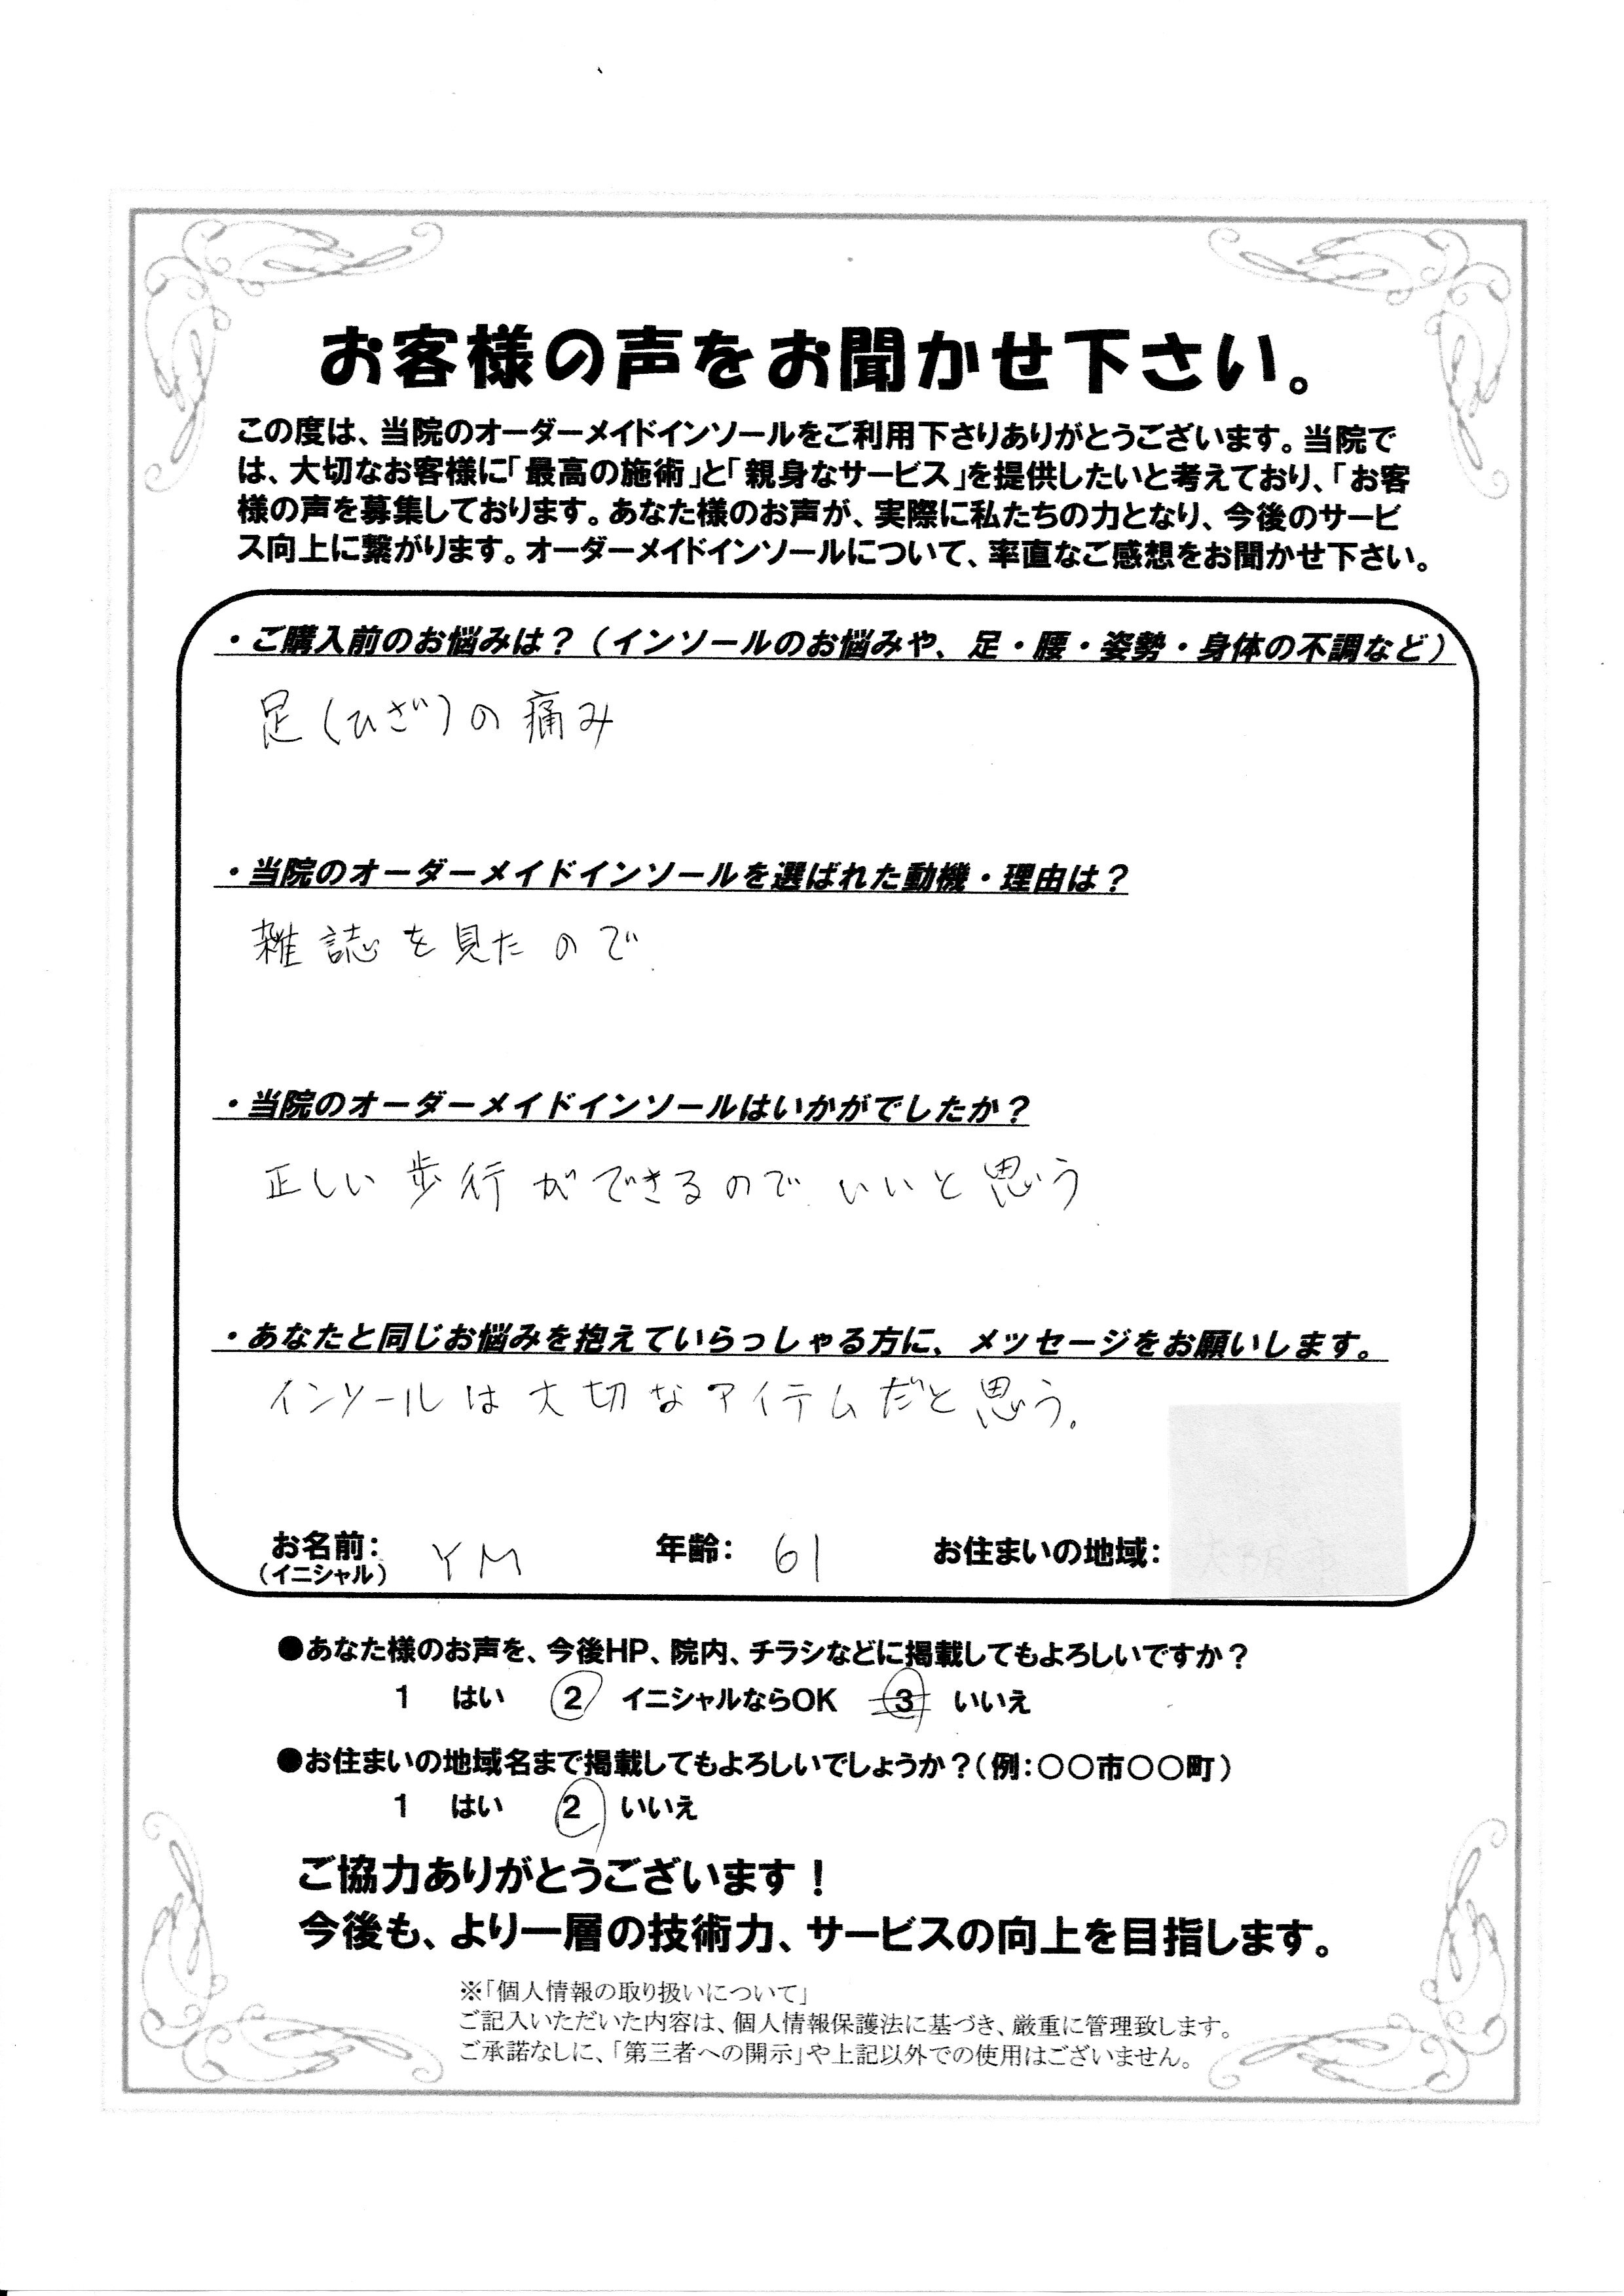 お客様の声をお聞かせ下さい。
この度は、当院のオーダーメイドインソールをご利用下さりありがとうございます。当院で
は、大切なお客様に「最高の施術」と「親身なサービス」を提供したいと考えており、「お客
様の声を募集しております。あなた様のお声が、実際に私たちの力となり、今後のサービ
ス向上に繋がります。オーダーメイドインソールについて、率直なご感想をお聞かせ下さい。
・ご購入前のお悩みは？（インソールのお悩みや、足・腰・姿勢・身体の不調など）
足(ひざ)の痛み
・当院のオーダーメイドインソールを選ばれた動機・理由は？
雑誌を見たので
・当院のオーダーメイドインソールはいかがでしたか？
正しい歩行ができるので いいと思う
・あなたと同じお悩みを抱えていらっしゃる方に、メッセージをお願いします。
インソールは大切なアイテムだと思う。
お名前： YM 年齢： 61 お住まいの地域：
（イニシャル）
●あなた様のお声を、今後HP、院内、チラシなどに掲載してもよろしいですか？
1 はい 2 イニシャルならOK 3 いいえ
●お住まいの地域名まで掲載してもよろしいでしょうか？（例：〇〇市〇〇町）
1 はい 2 いいえ
ご協力ありがとうございます！
今後も、より一層の技術力、サービスの向上を目指します。
※「個人情報の取り扱いについて」
ご記入いただいた内容は、個人情報保護法に基づき、厳重に管理致します。
ご承諾なしに、「第三者への開示」や上記以外での使用はございません。